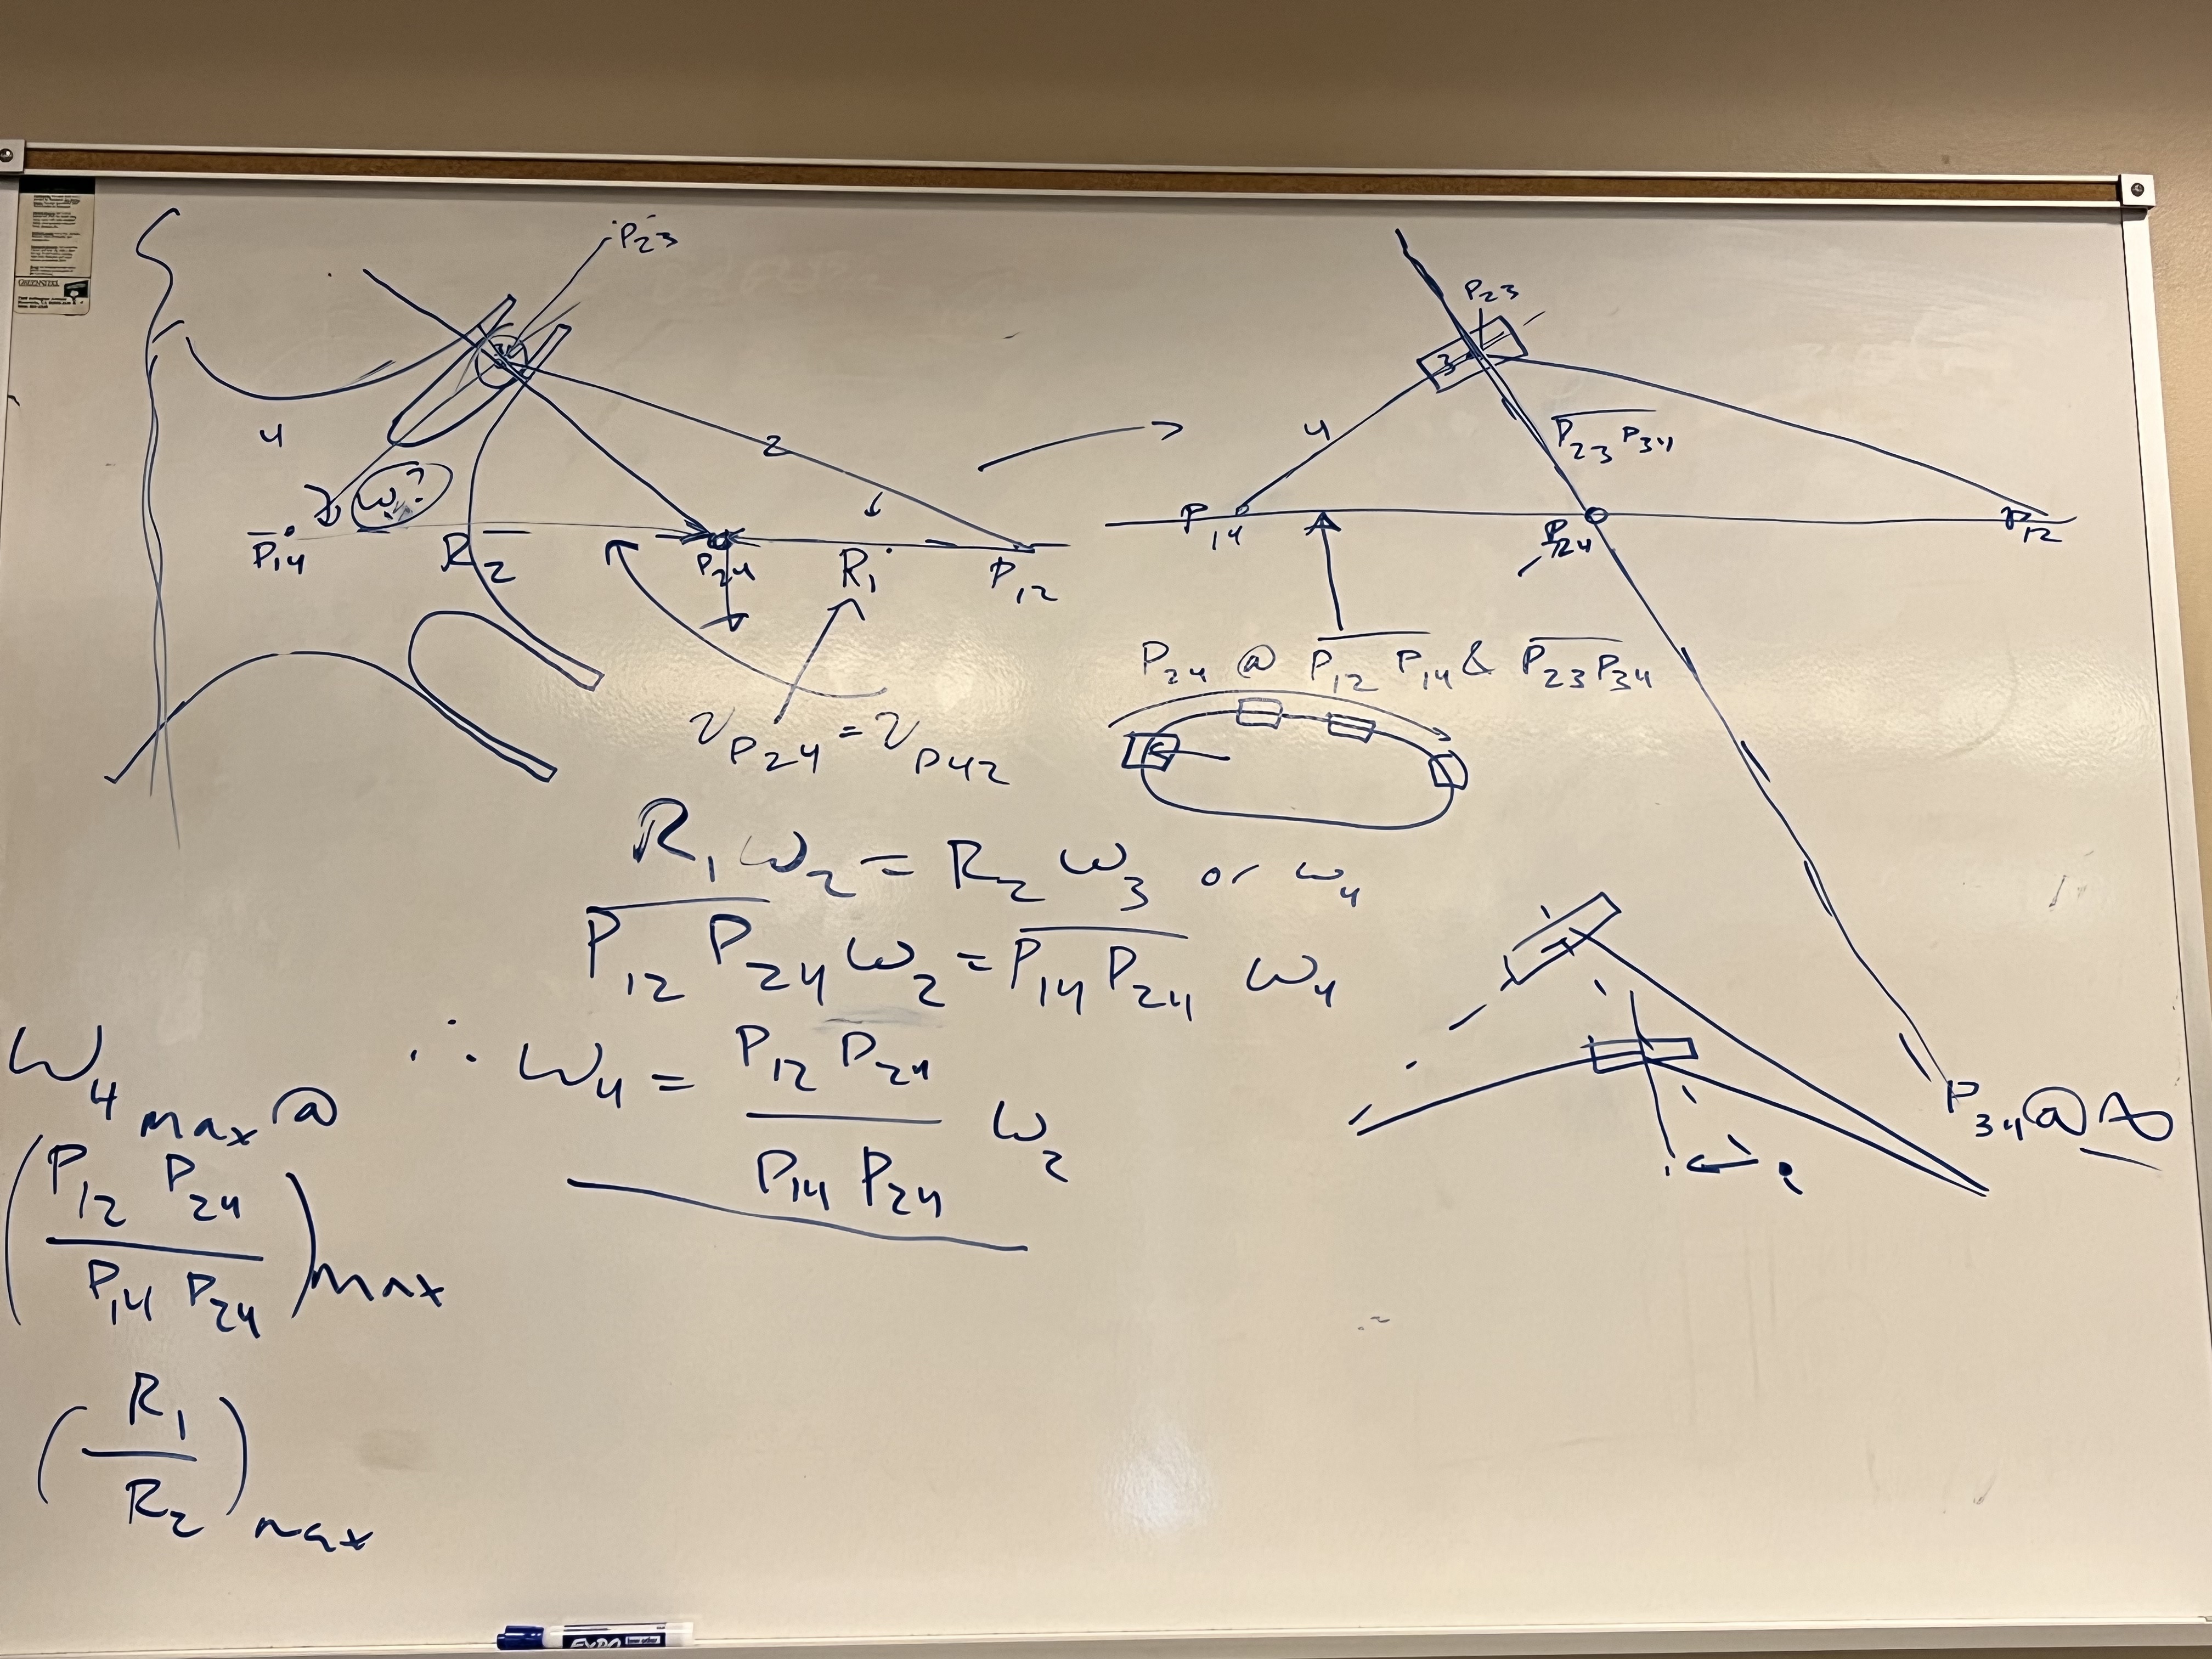 P23
4
3
2
ω?
P14
R2
P24
R1
P12
VP24 = VP42
P23
3
4
P23 P34
P14
P24
P12
P24 @ P12 P14 & P23 P34
R1 ω2 = R2 ω3 or ω4
P12 P24 ω2 = P14 P24 ω4
∴ ω4 = P12 P24 / P14 P24 ω2
P34 @ ∞
ω4 max @
(P12 P24 / P14 P24) max
(R1 / R2) max
GREENSTEEL
EXPO